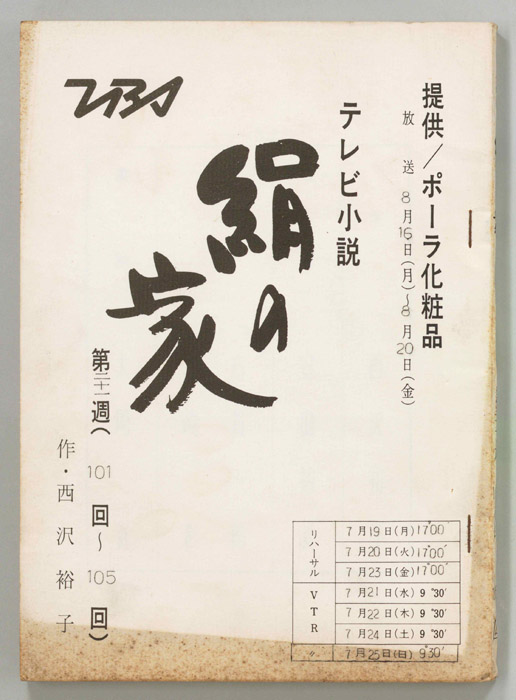 提供/ポーラ化粧品
放送 8月16日(月)〜8月20日(金)
テレビ小説
絹の家
第二十一週(101回〜105回)
作・西沢裕子
TBS
リハーサル
7月19日(月)17°00′
7月20日(火)17°00′
7月23日(金)17°00′
VTR
7月21日(水)9°30′
7月22日(木)9°30′
7月24日(土)9°30′
〃
7月25日(日)9°30′